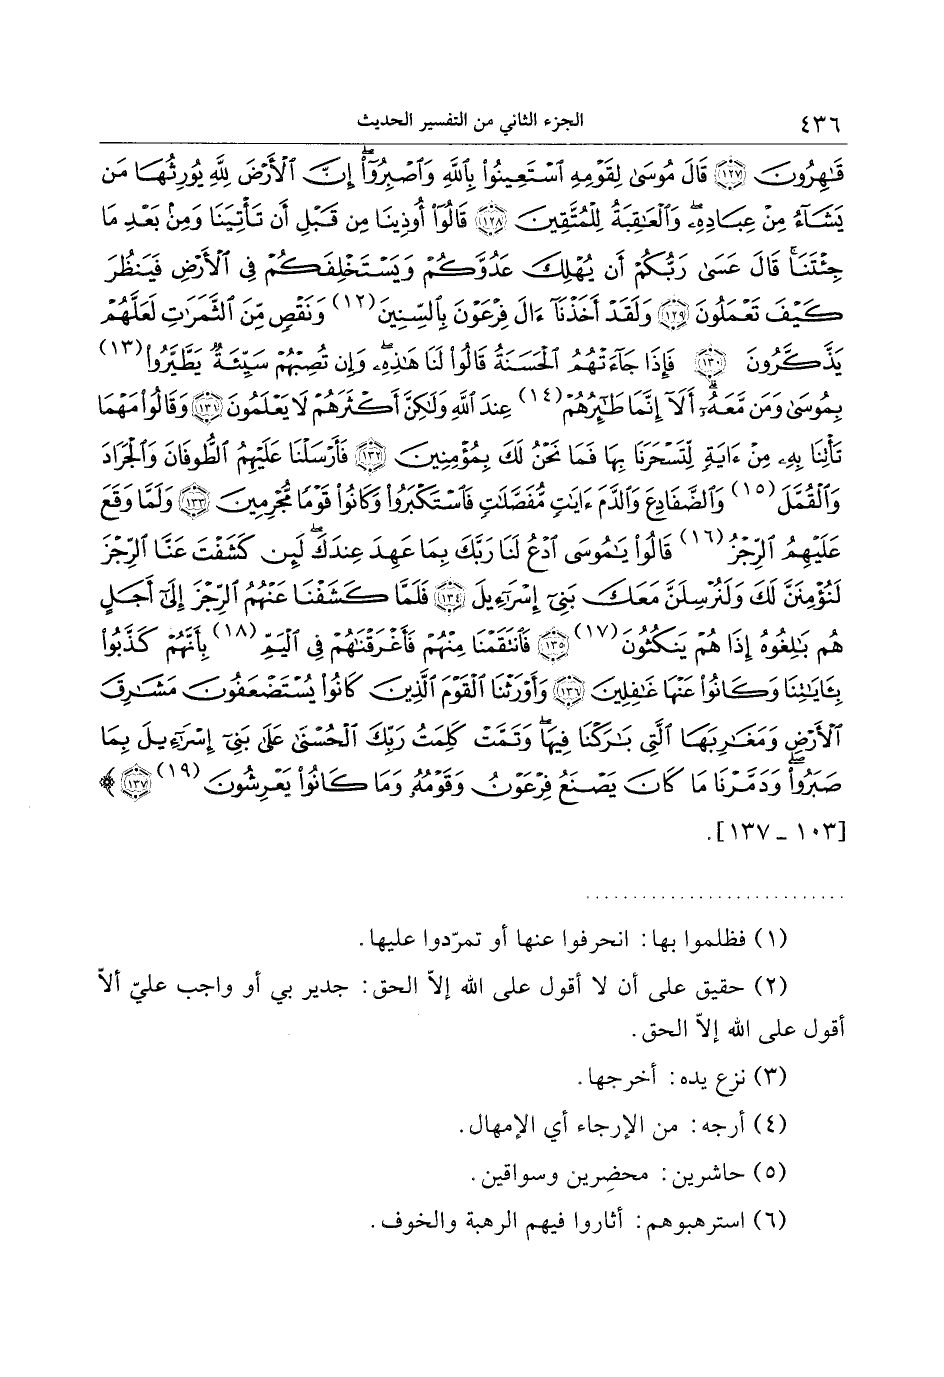 ٤٣٦ الجزء الثاني من التفسير الحديث
قَٰهِرُونَ ١٢٧ قَالَ مُوسَىٰ لِقَوْمِهِ ٱسْتَعِينُوا۟ بِٱللَّهِ وَٱصْبِرُوٓا۟ۖ إِنَّ ٱلْأَرْضَ لِلَّهِ يُورِثُهَا مَن
يَشَآءُ مِنْ عِبَادِهِۦۖ وَٱلْعَٰقِبَةُ لِلْمُتَّقِينَ ١٢٨ قَالُوٓا۟ أُوذِينَا مِن قَبْلِ أَن تَأْتِيَنَا وَمِنۢ بَعْدِ مَا
جِئْتَنَاۚ قَالَ عَسَىٰ رَبُّكُمْ أَن يُهْلِكَ عَدُوَّكُمْ وَيَسْتَخْلِفَكُمْ فِى ٱلْأَرْضِ فَيَنظُرَ
كَيْفَ تَعْمَلُونَ ١٢٩ وَلَقَدْ أَخَذْنَآ ءَالَ فِرْعَوْنَ بِٱلسِّنِينَ (١٢) وَنَقْصٍ مِّنَ ٱلثَّمَرَٰتِ لَعَلَّهُمْ
يَذَّكَّرُونَ ١٣٠ فَإِذَا جَآءَتْهُمُ ٱلْحَسَنَةُ قَالُوا۟ لَنَا هَٰذِهِۦۖ وَإِن تُصِبْهُمْ سَيِّئَةٌ يَطَّيَّرُوا۟ (١٣)
بِمُوسَىٰ وَمَن مَّعَهُۥٓۗ أَلَآ إِنَّمَا طَٰٓئِرُهُمْ (١٤) عِندَ ٱللَّهِ وَلَٰكِنَّ أَكْثَرَهُمْ لَا يَعْلَمُونَ ١٣١ وَقَالُوا۟ مَهْمَا
تَأْتِنَا بِهِۦ مِنْ ءَايَةٍ لِّتَسْحَرَنَا بِهَا فَمَا نَحْنُ لَكَ بِمُؤْمِنِينَ ١٣٢ فَأَرْسَلْنَا عَلَيْهِمُ ٱلطُّوفَانَ وَٱلْجَرَادَ
وَٱلْقُمَّلَ (١٥) وَٱلضَّفَادِعَ وَٱلدَّمَ ءَايَٰتٍ مُّفَصَّلَٰتٍ فَٱسْتَكْبَرُوا۟ وَكَانُوا۟ قَوْمًا مُّجْرِمِينَ ١٣٣ وَلَمَّا وَقَعَ
عَلَيْهِمُ ٱلرِّجْزُ (١٦) قَالُوا۟ يَٰمُوسَى ٱدْعُ لَنَا رَبَّكَ بِمَا عَهِدَ عِندَكَۖ لَئِن كَشَفْتَ عَنَّا ٱلرِّجْزَ
لَنُؤْمِنَنَّ لَكَ وَلَنُرْسِلَنَّ مَعَكَ بَنِىٓ إِسْرَٰٓءِيلَ ١٣٤ فَلَمَّا كَشَفْنَا عَنْهُمُ ٱلرِّجْزَ إِلَىٰٓ أَجَلٍ
هُم بَٰلِغُوهُ إِذَا هُمْ يَنكُثُونَ (١٧) ١٣٥ فَٱنتَقَمْنَا مِنْهُمْ فَأَغْرَقْنَٰهُمْ فِى ٱلْيَمِّ (١٨) بِأَنَّهُمْ كَذَّبُوا۟
بِـَٔايَٰتِنَا وَكَانُوا۟ عَنْهَا غَٰفِلِينَ ١٣٦ وَأَوْرَثْنَا ٱلْقَوْمَ ٱلَّذِينَ كَانُوا۟ يُسْتَضْعَفُونَ مَشَٰرِقَ
ٱلْأَرْضِ وَمَغَٰرِبَهَا ٱلَّتِى بَٰرَكْنَا فِيهَاۖ وَتَمَّتْ كَلِمَتُ رَبِّكَ ٱلْحُسْنَىٰ عَلَىٰ بَنِىٓ إِسْرَٰٓءِيلَ بِمَا
صَبَرُوا۟ۖ وَدَمَّرْنَا مَا كَانَ يَصْنَعُ فِرْعَوْنُ وَقَوْمُهُۥ وَمَا كَانُوا۟ يَعْرِشُونَ (١٩) ١٣٧ ﴾
[١٠٣ ـ ١٣٧].
(١) فظلموا بها: انحرفوا عنها أو تمرّدوا عليها.
(٢) حقيق على أن لا أقول على الله إلاّ الحق: جدير بي أو واجب عليّ ألاّ
أقول على الله إلاّ الحق.
(٣) نزع يده: أخرجها.
(٤) أرجه: من الإرجاء أي الإمهال.
(٥) حاشرين: محضِرين وسواقين.
(٦) استرهبوهم: أثاروا فيهم الرهبة والخوف.